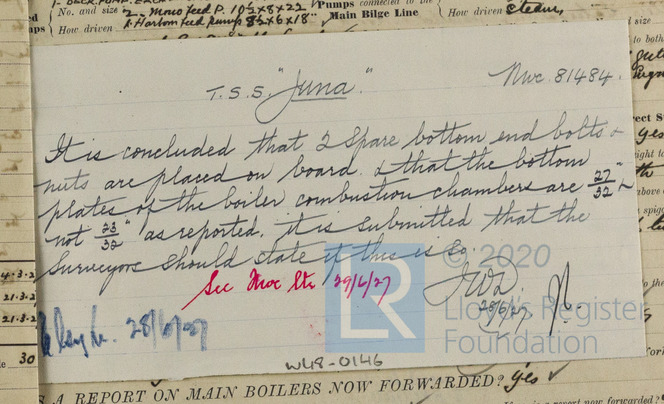 No. and size
2. Mono feed P. 10½ x 8 x 22"
1. Harbour feed pump 8½ x 6 x 18"
How driven
Pumps connected to the
Main Bilge Line
How driven Steam,
T.S.S. "Juna."
Nwc. 81484.
It is concluded that 2 spare bottom end bolts &
nuts are placed on board. & that the bottom
plates of the boiler combustion chambers are 27/32"
not 23/32" as reported, it is submitted that the
Surveyors should state if this is so.
See Nwc ltr 29/6/27
28/6/27
28/6/27
© 2020
LR
Lloyd's Register
Foundation
W48-0146
4.3.2
21.3.2
21.3.2
30
A REPORT ON MAIN BOILERS NOW FORWARDED? Yes